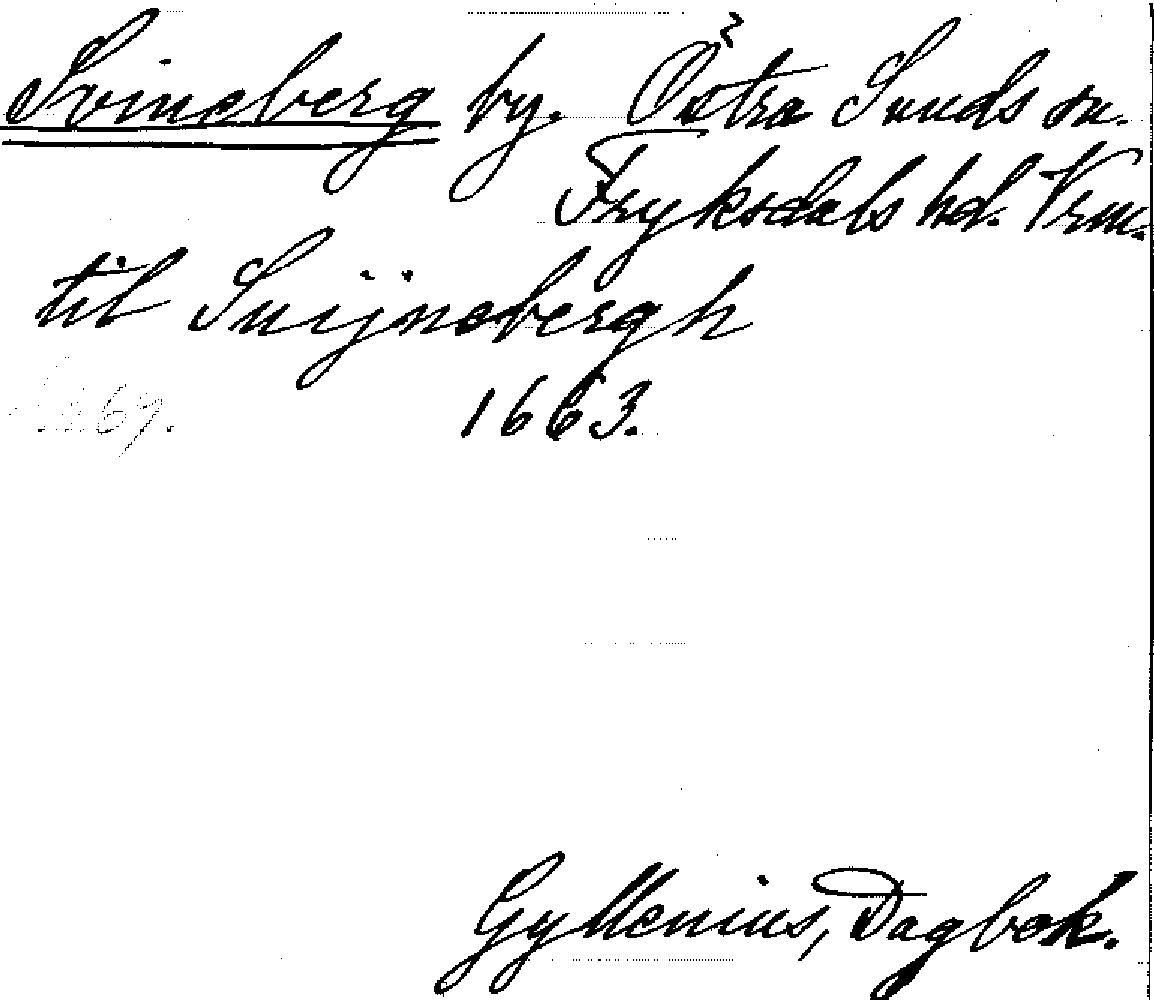 Svineberg by. Östra Sunds sn.
Fryksdals hd. Vrm.
til Suijnebergh
1663.
Gyllenius, Dagbok.